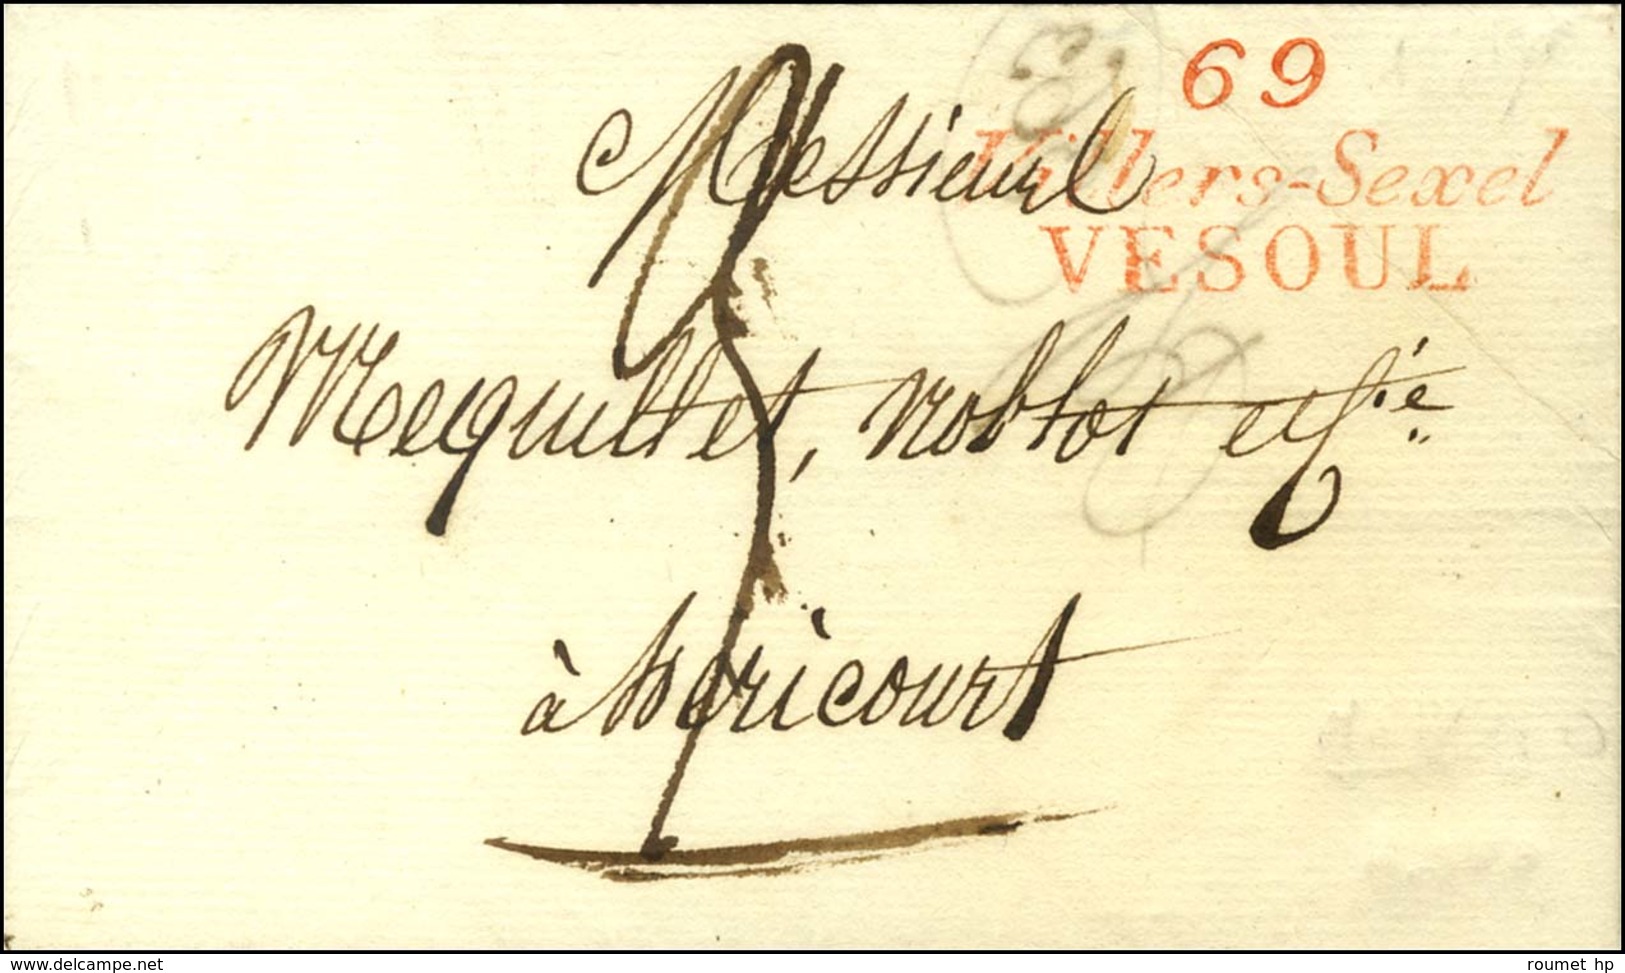 69
Villers-Sexel
VESOUL
Messieurs
Mequillet, Noblot et Cie
à héricourt
www.delcampe.net
roumet hp